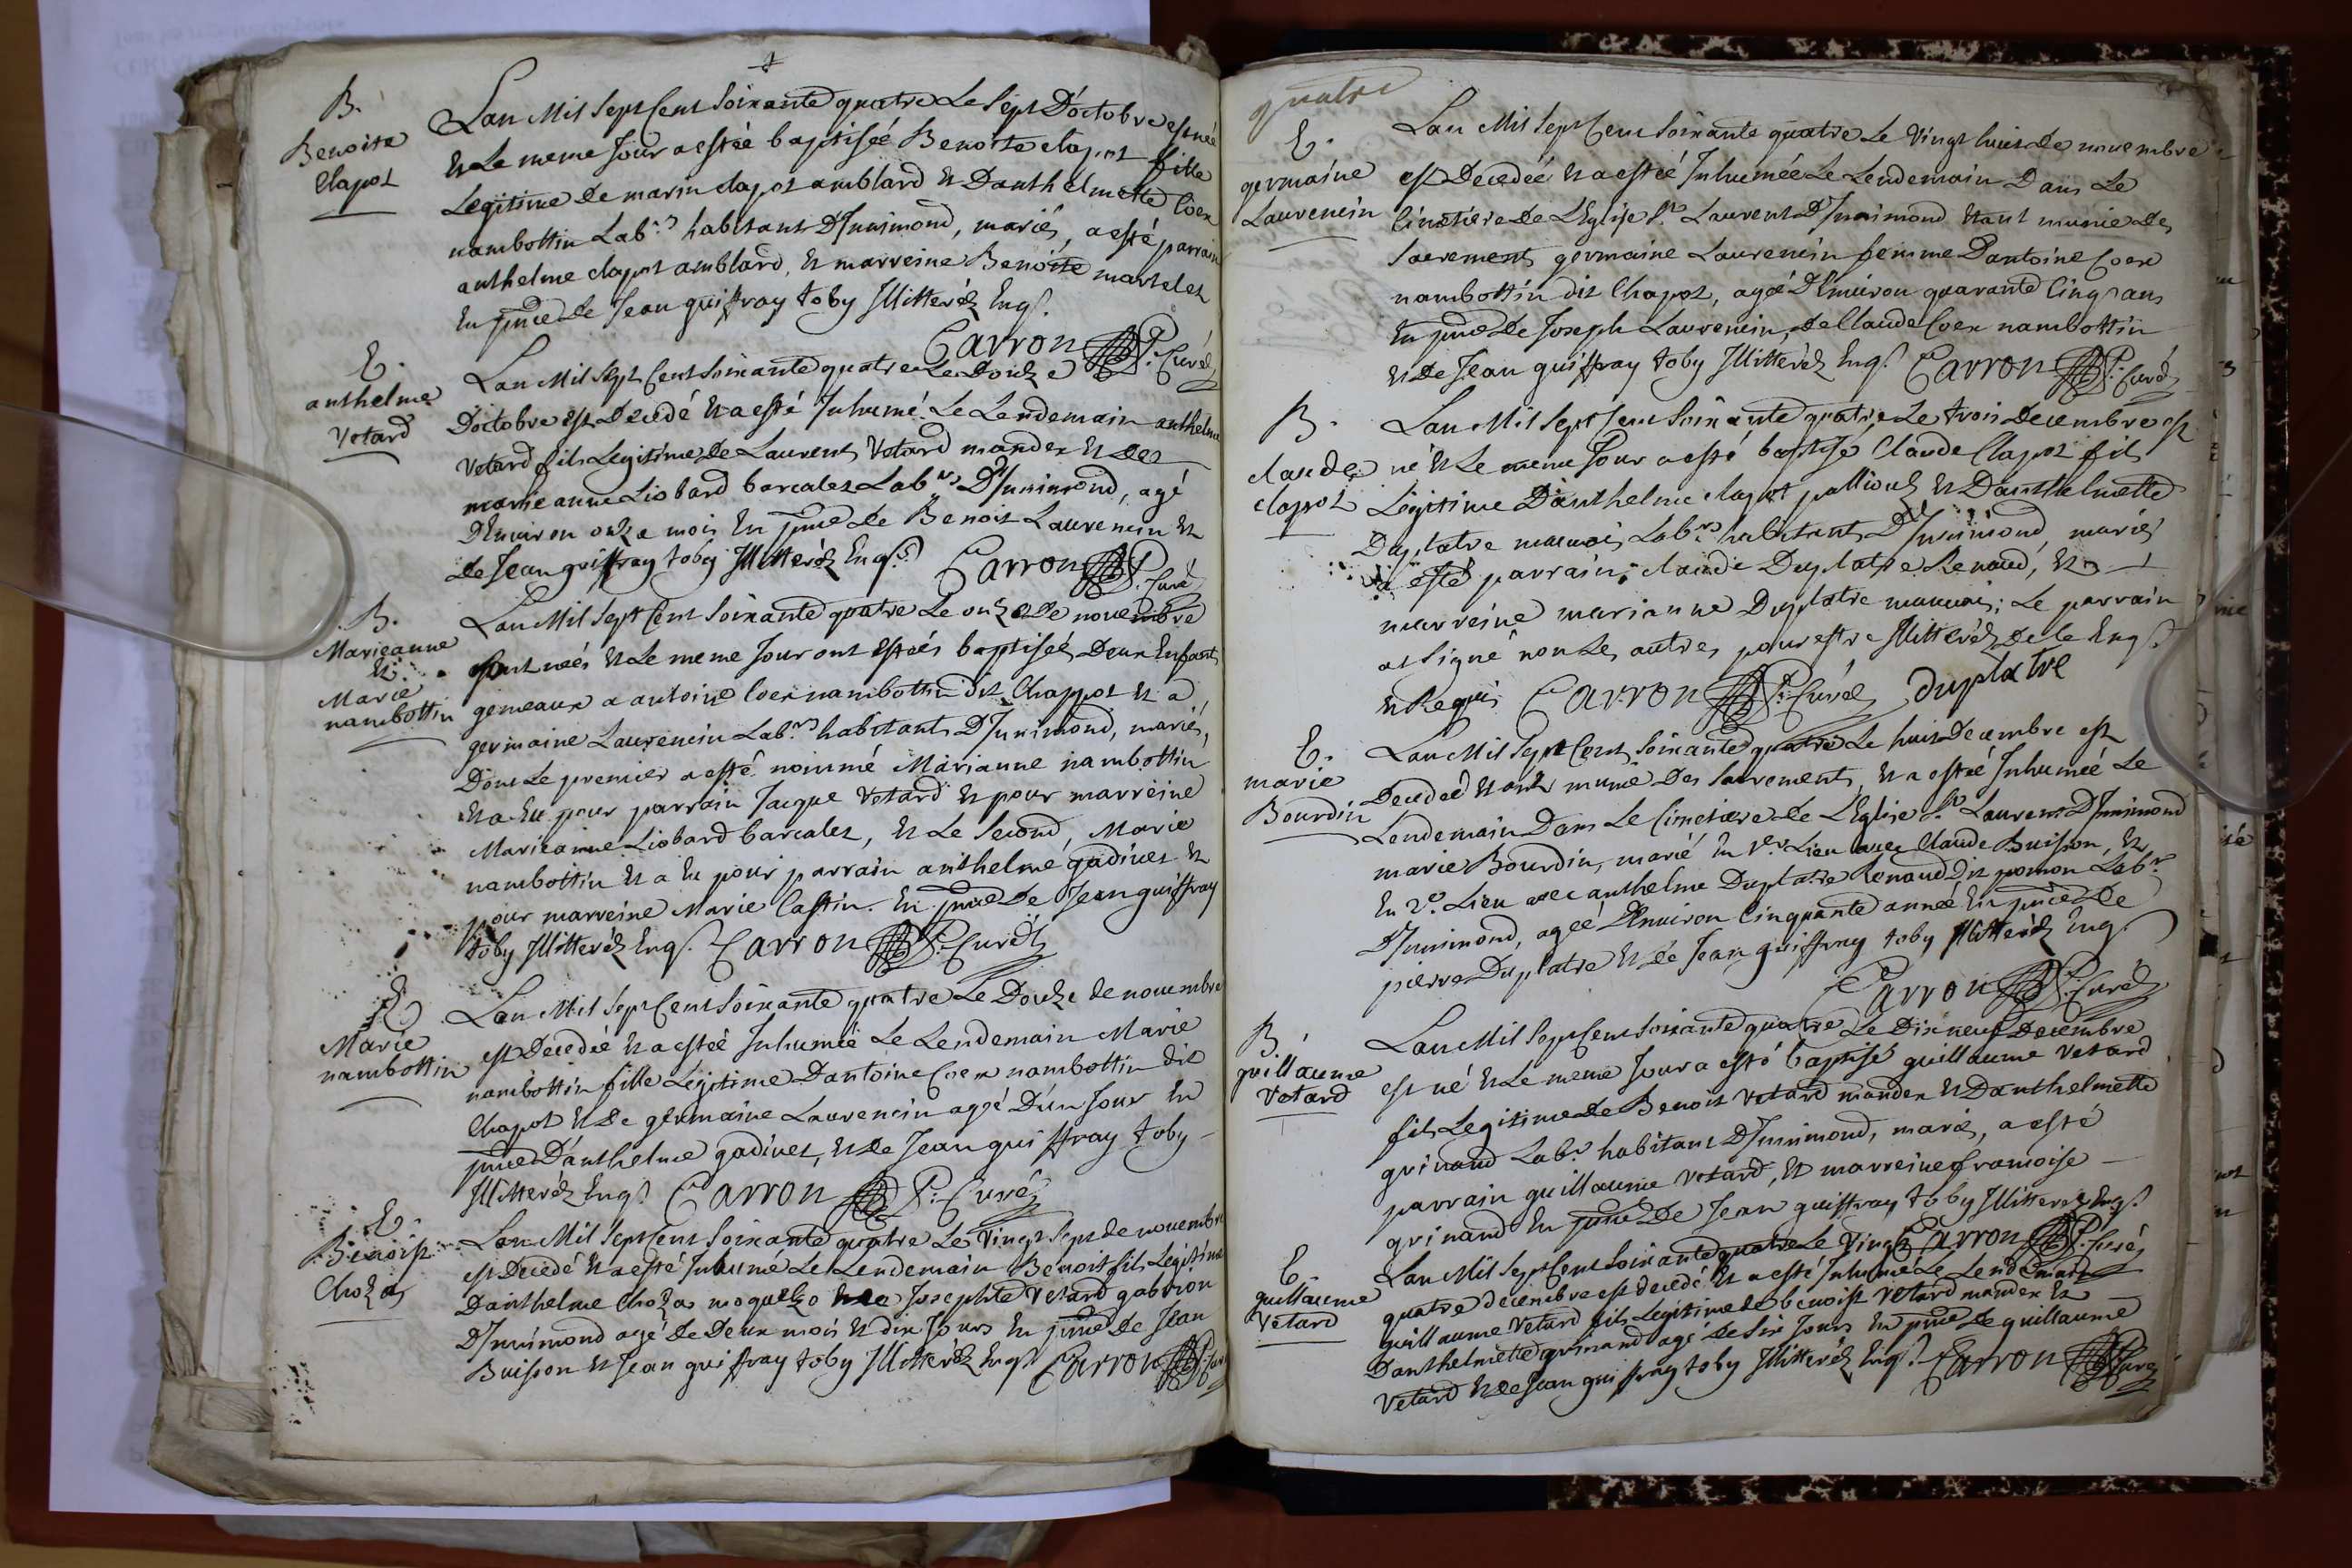 B.
Benoite
Clapot
Lan Mil Sept Cent Soixante quatre Le Sept D'octobre est née
Et Le meme Jour a estée baptisée Benoite Clapot fille
Legitime De marin clapot amblard Et D'anthelmette Coex
nambottin Lab.rs habitants D'Innimond, mariés, a esté parrain
anthelme clapot amblard, Et marreine Benoite martelet
En pnce de Jean guiffray toby Illitteréz Enqs.
Carron P: Curéz
E.
anthelme
Vetard
Lan Mil Sept Cent Soixante quatre Le Douze
D'octobre est Decedé Et a esté Inhumé Le Lendemain anthelme
Vetard fils Legitime De Laurent Vetard mandex Et De
marie anne Liobard barcalet Lab.rs D'Innimond, agé
D'Environ onze mois En pnce De Benoit Laurencin Et
de Jean guiffray toby Illitteréz Enqs. Carron P: Curéz
B.
Marieanne
Et
Marie
nambottin
Lan Mil Sept Cent Soixante quatre Le onze De novembre
sont neés Et Le meme Jour ont estées baptiseés Deux Enfants
gemeaux a antoine Coex nambottin dit Chappot Et a
germaine Laurencin Lab.rs habitants D'Innimond, mariés,
Dont Le premier a esté nommé Marianne nambottin
Et a Eu pour parrain Jacque Vetard Et pour marreine
Marieanne Liobard barcalet, Et Le Second, Marie
nambottin Et a Eu pour parrain anthelme gadinet Et
pour marreine Marie Castin. En pnce De Jean guiffray
toby Illitteréz Enqs. Carron P: Curéz
E
Marie
nambottin
Lan Mil Sept Cent Soixante quatre Le Douze de novembre
est Decedée Et a estée Inhumée Le Lendemain Marie
nambottin fille Legitime D'antoine Coex nambottin dit
Chapot Et De germaine Laurencin agée D'un Jour En
pnce D'anthelme gadinet, Et De Jean guiffray toby
Illitteréz Enqs. Carron P: Curéz
E.
Benoist
Chozas
Lan Mil Sept Cent Soixante quatre Le Vingt Sept de novembre
est Decedé Et a esté Inhumé Le Lendemain Benoit fils Legitime
D'anthelme Chozas Josephte Vetard gabrion
D'Innimond agé De Deux mois Et dix Jours En pnce De Jean
Buisson Et Jean guiffray toby Illitteréz Enqs. Carron P: Curéz
quatre
E.
germaine
Laurencin
Lan Mil Sept Cent Soixante quatre Le Vingt huit De novembre
est Decedée Et a estée Inhumée Le Lendemain Dans Le
Cimetiere De L'Eglise St. Laurent D'Innimond Etant munie des
Sacrements germaine Laurencin femme D'antoine Coex
nambottin dit Chapot, agée D'Environ quarante Cinq ans
En pnce De Joseph Laurencin, De Claude Coex nambottin
Et De Jean guiffray toby Illitteréz Enqs. Carron P: Curéz
B.
claude
clapot
Lan Mil Sept Cent Soixante quatre Le trois Decembre est
né Et Le meme Jour a esté baptisé Claude Clapot fils
Legitime D'anthelme clapot Et D'anthelmette
Duplatre Lab.rs habitants D'Innimond, mariés
a esté parrain, claude Duplatre Renaud, Et
marreine marianne Duplatre Le parrain
a Signé non Les autres pour estre Illitteréz De Ce Enqs
Et Requis Carron P: Curéz duplatre
E.
marie
Bourdin
Lan Mil Sept Cent Soixante quatre Le huit Decembre est
Decedeé munie Des Sacrements, Et a estée Inhumée Le
Lendemain Dans Le Cimetiere De L'Eglise St. Laurent D'Innimond
marie Bourdin, marié En 1er. Lieu avec Claude Buisson, Et
En 2e. Lieu avec anthelme Duplatre Renaud Dit pomon Lab.r
D'Innimond, agée D'Environ Cinquante année En pnce De
pierre Duplatre Et De Jean guiffray toby Illitteréz Enqs.
Carron P: Curéz
B.
guillaume
Vetard
Lan Mil Sept Cent Soixante quatre Le Dix neuf Decembre
est né Et Le meme Jour a esté baptisé guillaume Vetard
fils Legitime De Benoit Vetard mandex Et D'anthelmette
grinand Lab.rs habitants D'Innimond, mariés, a esté
parrain guillaume Vetard, Et marreine francoise
grinand En pnce De Jean guiffray toby Illitteréz Enqs.
Carron P: Curéz
E.
guillaume
Vetard
Lan Mil Sept Cent Soixante quatre Le Vingt
quatre decembre est decedé Et a esté Inhumé Le Lendemain
guillaume Vetard fils Legitime de benoist Vetard mandex Et
D'anthelmette grinand agé De Six Jours En pnce De guillaume
Vetard Et De Jean guiffray toby Illitteréz Enqs. Carron P: Curéz